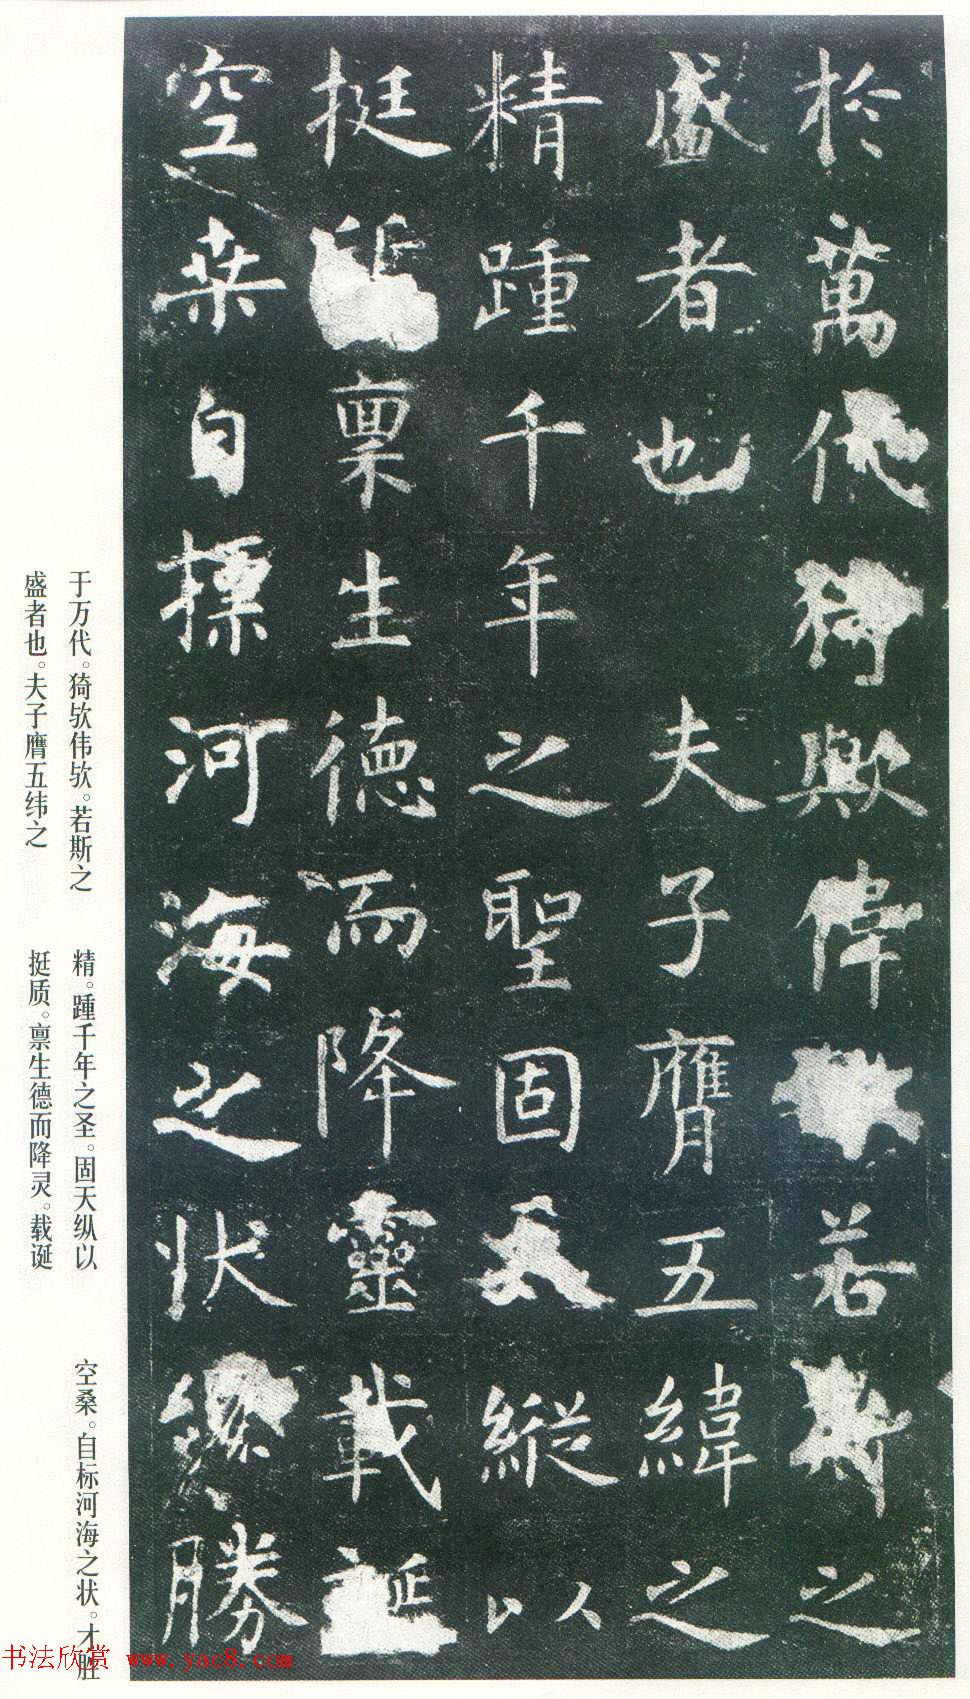 於萬代猗歟偉若斯之
盛者也 夫子膺五緯之
精踵千年之聖固天縱以
挺禀生德而降靈載誕
空桒自摽河海之狀纔勝
于万代。猗欤伟欤。若斯之
盛者也。夫子膺五纬之
精。踵千年之圣。固天纵以
挺质。禀生德而降灵。载诞
空桑。自标河海之状。才胜
书法欣赏 www.yac8.com